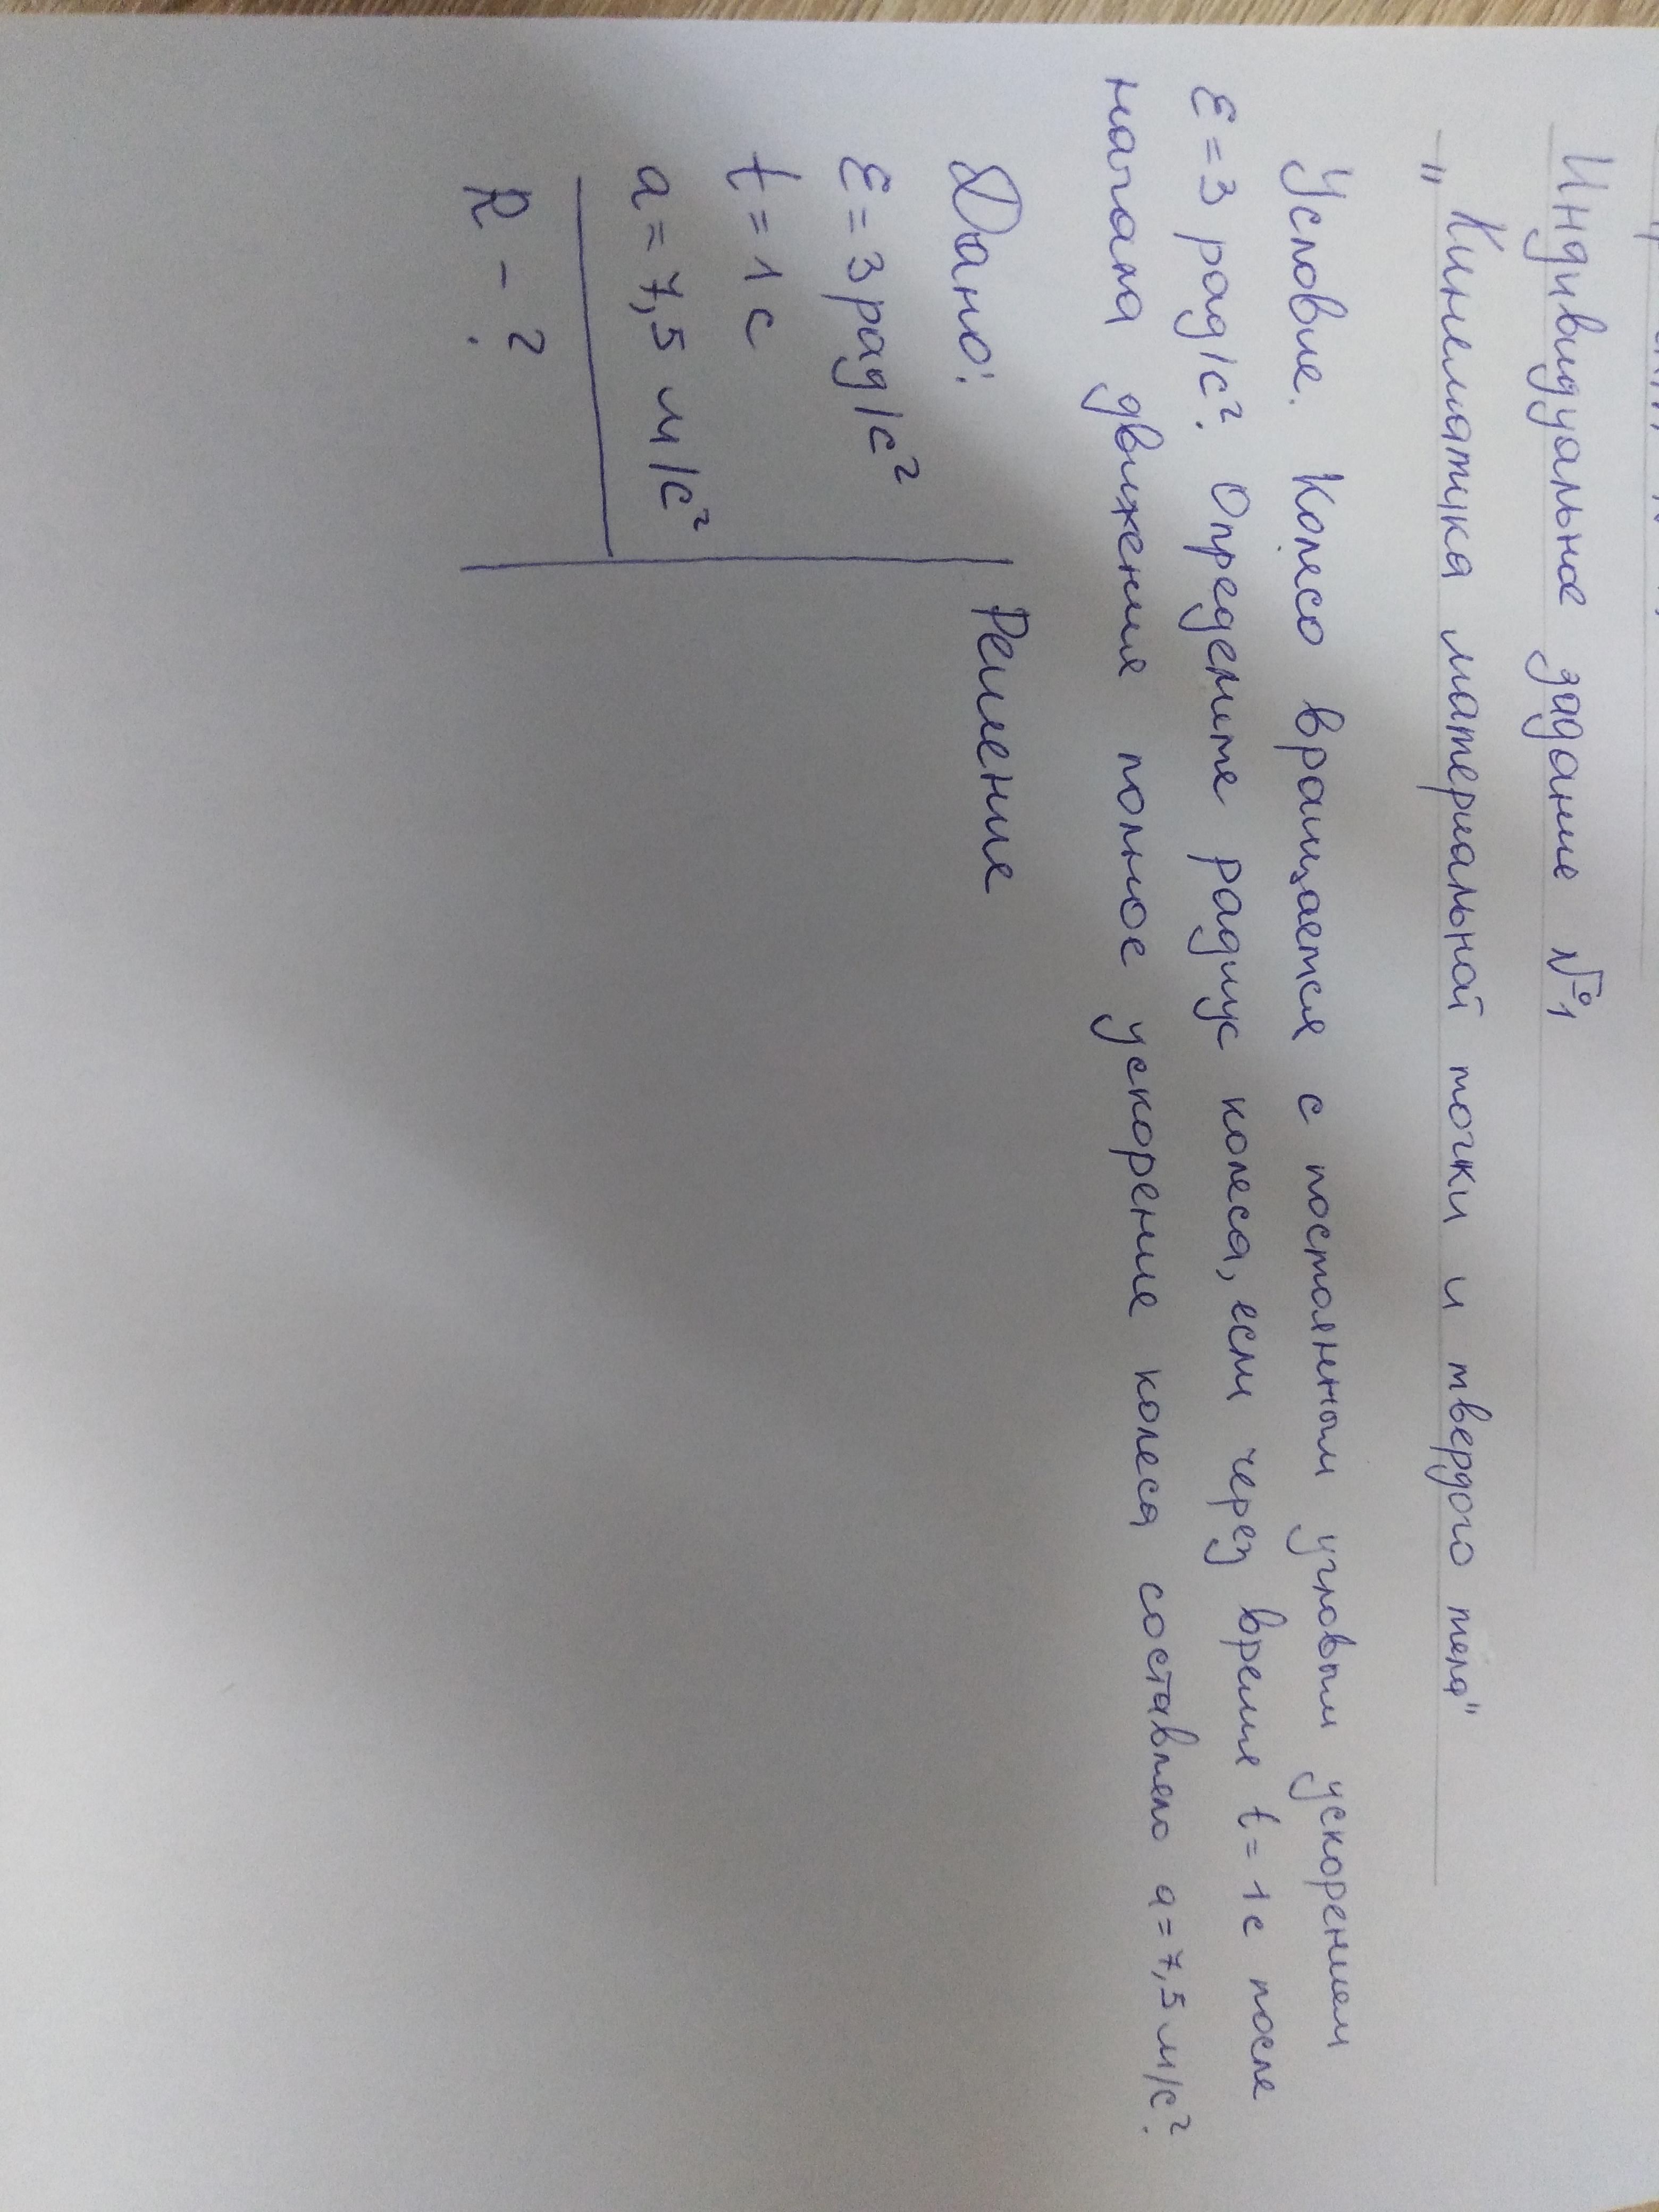 Индивидуальное задание №1
"Кинематика материальной точки и твердого тела"
Условие. Колесо вращается с постоянным угловым ускорением
ε = 3 рад/с². Определите радиус колеса, если через время t = 1 с после
начала движения полное ускорение колеса составляло a = 7,5 м/с².
Дано: Решение
ε = 3 рад/с²
t = 1 с
a = 7,5 м/с²
R - ?